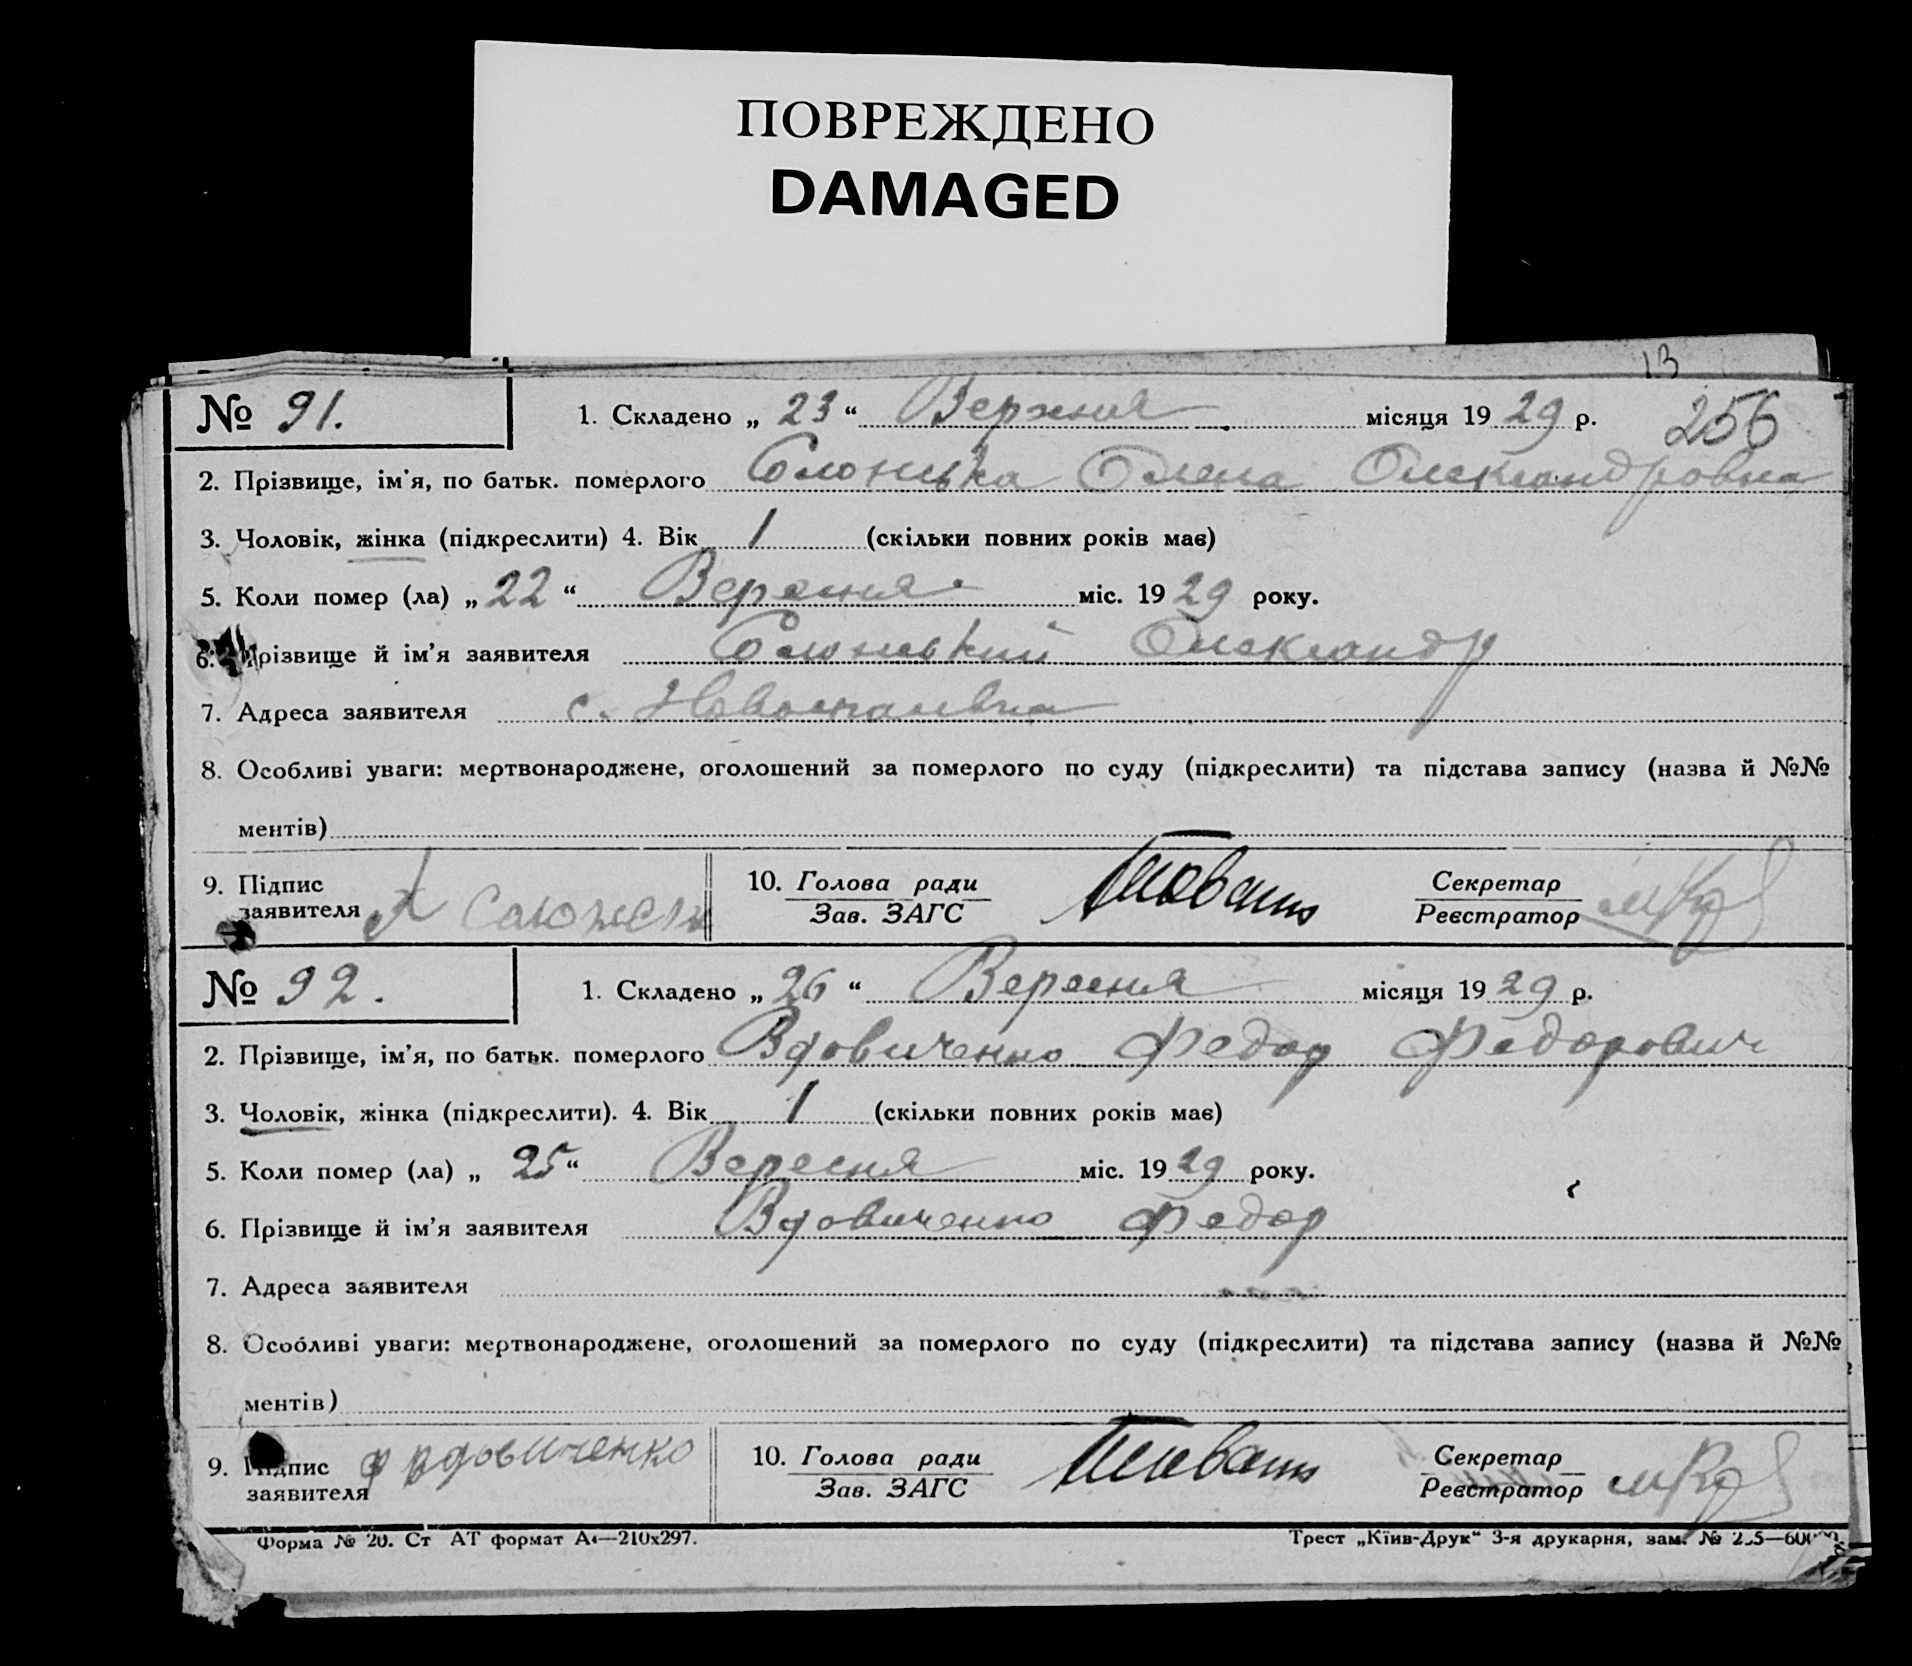 ПОВРЕЖДЕНО
DAMAGED
13
№ 91. 1. Складено „ 23 “ Вересня місяця 19 29 р. 256
2. Прізвище, ім'я, по батьк. померлого Слонська Олена Олександровна
3. Чоловік, жінка (підкреслити) 4. Вік 1 (скільки повних років має)
5. Коли помер (ла) „ 22 “ Вересня міс. 19 29 року.
6. Прізвище й ім'я заявителя Слонський Олександр
7. Адреса заявителя с.
8. Особливі уваги: мертвонароджене, оголошений за померлого по суду (підкреслити) та підстава запису (назва й №№
ментів)
9. Підпис заявителя А 10. Голова ради Зав. ЗАГС Секретар Реєстратор
№ 92. 1. Складено „ 26 “ Вересня місяця 19 29 р.
2. Прізвище, ім'я, по батьк. померлого Вдовиченко Федор Федорович
3. Чоловік, жінка (підкреслити). 4. Вік 1 (скільки повних років має)
5. Коли помер (ла) „ 25 “ Вересня міс. 19 29 року.
6. Прізвище й ім'я заявителя Вдовиченко Федор
7. Адреса заявителя
8. Особливі уваги: мертвонароджене, оголошений за померлого по суду (підкреслити) та підстава запису (назва й №№
ментів)
9. Підпис заявителя Ф Вдовиченко 10. Голова ради Зав. ЗАГС Секретар Реєстратор
Форма № 20. Ст АТ формат А4—210х297. Трест „Київ-Друк“ 3-я друкарня, зам. №